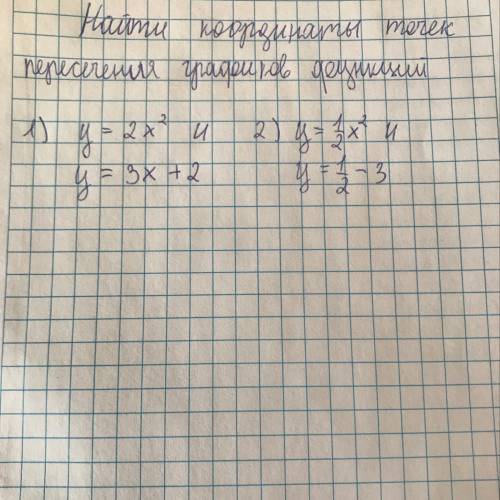 Найти координаты точек
пересечения графиков функций
1) y = 2x² и 2) y = 1/2 x² и
y = 3x + 2 y = 1/2 - 3